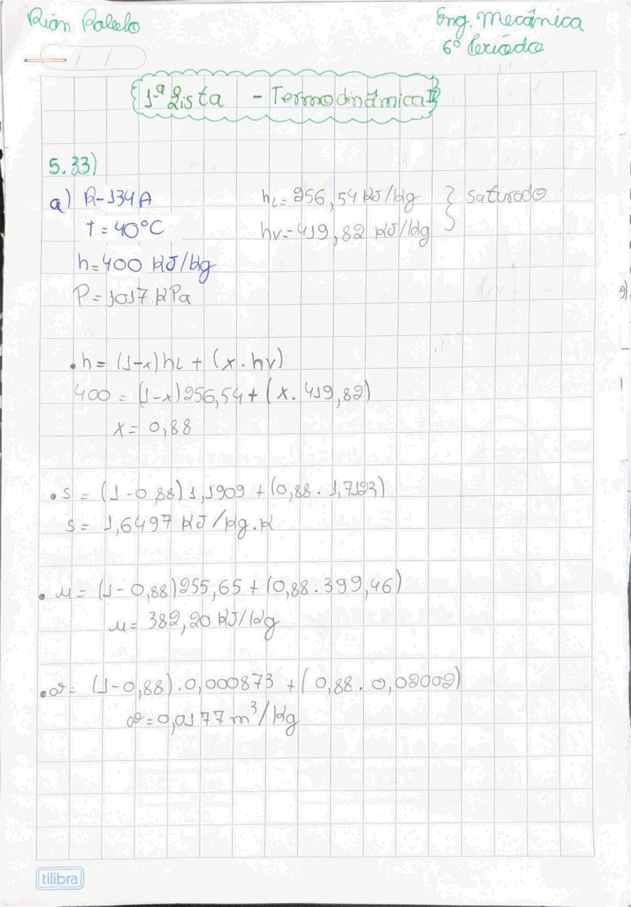 Rian Rabelo
Eng. Mecânica
6º Período
1ª Lista - Termodinâmica II
5.33)
a) R-134A
T = 40°C
h = 400 kJ/kg
P = 1017 kPa
hL = 256,54 kJ/kg
hv = 419,82 kJ/kg
} saturado
• h = (1-x)hL + (x . hv)
400 = (1-x)256,54 + (x . 419,82)
x = 0,88
• s = (1-0,88)1,1909 + (0,88 . 1,7123)
s = 1,6497 kJ/kg.k
• u = (1-0,88)255,65 + (0,88 . 399,46)
u = 382,20 kJ/kg
• v = (1-0,88) . 0,000873 + (0,88 . 0,02002)
v = 0,0177 m³/kg
tilibra